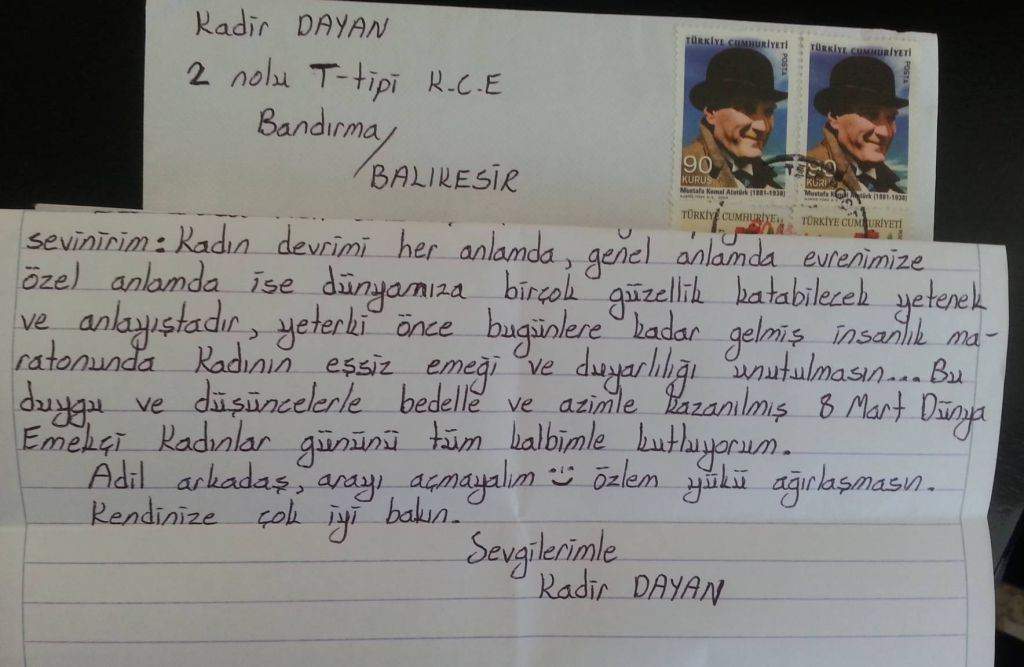 Kadir DAYAN
2 nolu T-tipi K.C.E
Bandırma/
BALIKESİR
TÜRKİYE CUMHURİYETİ
POSTA
90
KURUŞ
Mustafa Kemal Atatürk (1881-1938)
TÜRKİYE CUMHURİYETİ
POSTA
90
KURUŞ
Mustafa Kemal Atatürk (1881-1938)
TÜRKİYE CUMHURİYETİ
TÜRKİYE CUMHURİYETİ
sevinirim: Kadın devrimi her anlamda, genel anlamda evrenimize
özel anlamda ise dünyamıza birçok güzellik katabilecek yetenek
ve anlayıştadır, yeterki önce bugünlere kadar gelmiş insanlık ma-
ratonunda Kadının eşsiz emeği ve duyarlılığı unutulmasın... Bu
duygu ve düşüncelerle bedelle ve azimle kazanılmış 8 Mart Dünya
Emekçi Kadınlar gününü tüm kalbimle kutluyorum.
Adil arkadaş, arayı açmayalım :) özlem yükü ağırlaşmasın.
Kendinize çok iyi bakın.
Sevgilerimle
Kadir DAYAN